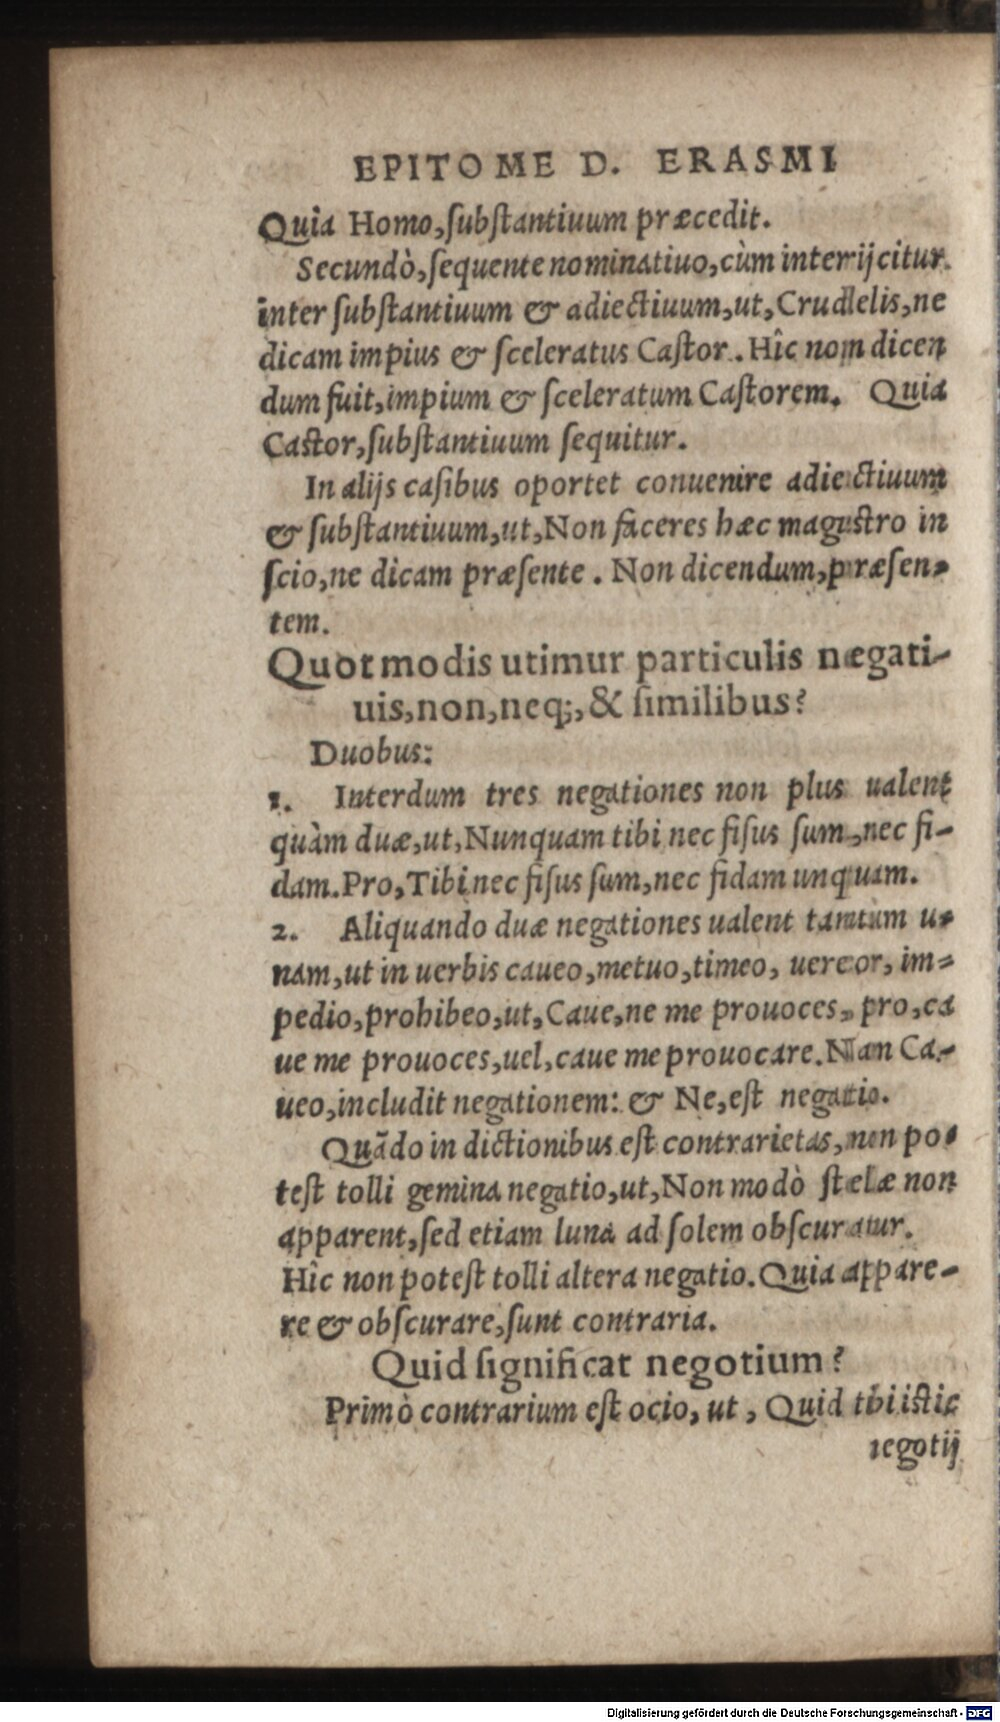 EPITOME D. ERASMI
Quia Homo, substantiuum præcedit.
Secundò, sequente nominatiuo, cùm interijcitur
inter substantiuum & adiectiuum, ut, Crudelis, ne
dicam impius & sceleratus Castor. Hîc non dicen
dum fuit, impium & sceleratum Castorem. Quia
Castor, substantiuum sequitur.
In alijs casibus oportet conuenire adiectiuum
& substantiuum, ut, Non faceres hæc magistro in
scio, ne dicam præsente. Non dicendum, præsen-
tem.
Quot modis utimur particulis negati-
uis, non, neq;, & similibus?
Duobus:
1. Interdum tres negationes non plus ualent
quàm duæ, ut, Nunquam tibi nec fisus sum, nec fi-
dam. Pro, Tibi nec fisus sum, nec fidam unquam.
2. Aliquando duæ negationes ualent tantùm u-
nam, ut in uerbis caueo, metuo, timeo, uereor, im-
pedio, prohibeo, ut, Caue, ne me prouoces, pro, ca
ue me prouoces, uel, caue me prouocare. Nam Ca-
ueo, includit negationem: & Ne, est negatio.
Quãdo in dictionibus est contrarietas, non po-
test tolli gemina negatio, ut, Non modò stelæ non
apparent, sed etiam luna ad solem obscuratur.
Hîc non potest tolli altera negatio. Quia appare-
re & obscurare, sunt contraria.
Quid significat negotium?
Primò contrarium est ocio, ut, Quid tbi istic
negotij
Digitalisierung gefördert durch die Deutsche Forschungsgemeinschaft - DFG